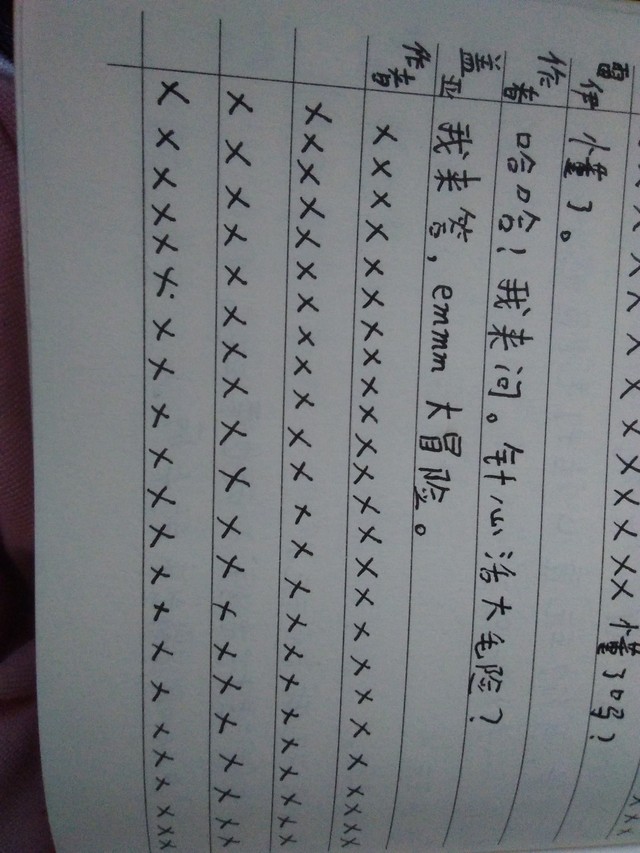 ×××××××××××× 懂了吗？
雷伊 懂了。
作者 哈哈！我来问。针心活大毛险？
盖亚 我来答，emmm 大冒险。
作者 ×××××××××××××××××××××××××
××××××××××××××××××××××××
××××××××××××××××××××
××××××××××××××××××××××